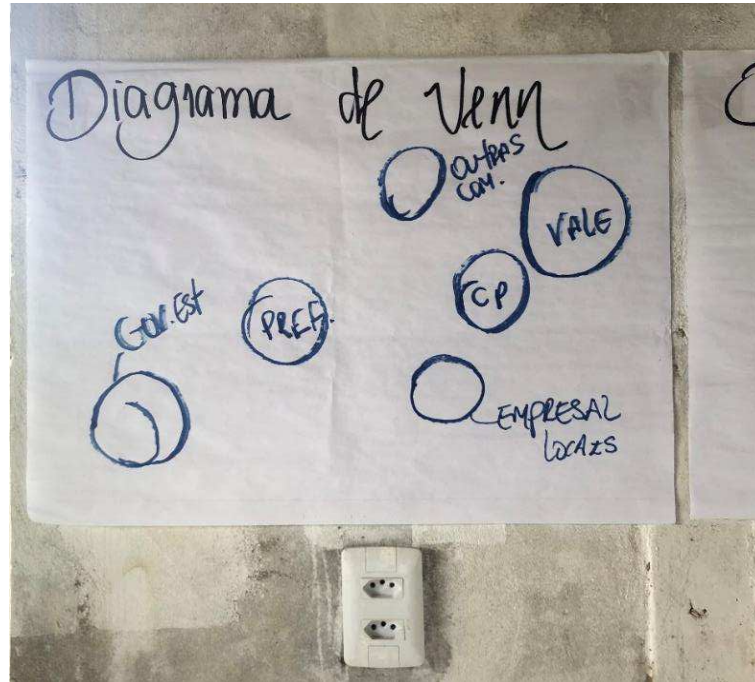 Diagrama de Venn
OUTRAS
COM.
VALE
CP
GOV. EST
PREF.
EMPRESAS
LOCAIS